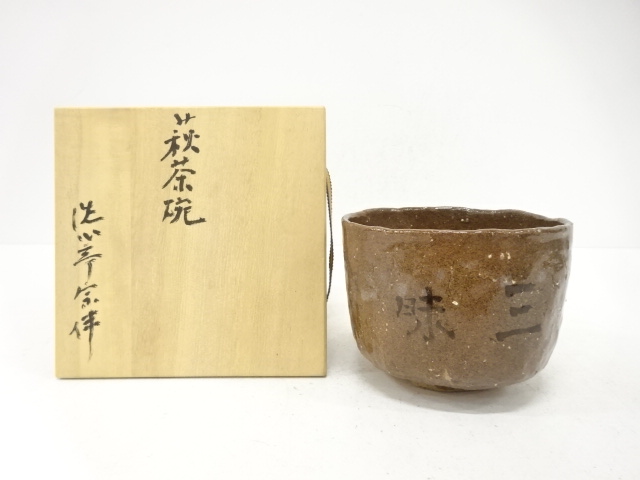 萩茶碗
洗心亭宗伴
三味